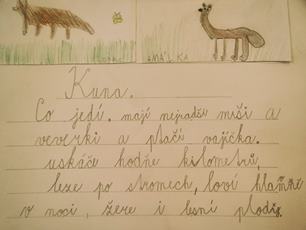 AMÁLKA
Kuna.
Co jedí. mají nejradši miši a
veverki a ptačí vajíčka.
uskáče hodňe kilometrů,
leze po stromech, loví hlavňě
v noci, žere i lesní plodi.